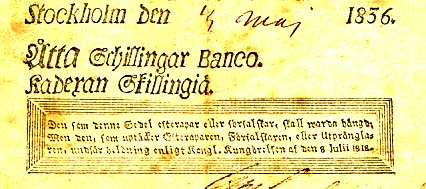 Stockholm den 1/4 maj 1836.
Åtta Schillingar Banco.
Kadexan Skillingiä.
Den som denne Sedel efterapar eller förfalskar, skall warda hängd;
Men den, som uptäcker Efteraparen, Förfalskaren, eller Utprångla-
ren, undfår belöning enligt Kongl. Kungörelsen af den 8 Julii 1818.